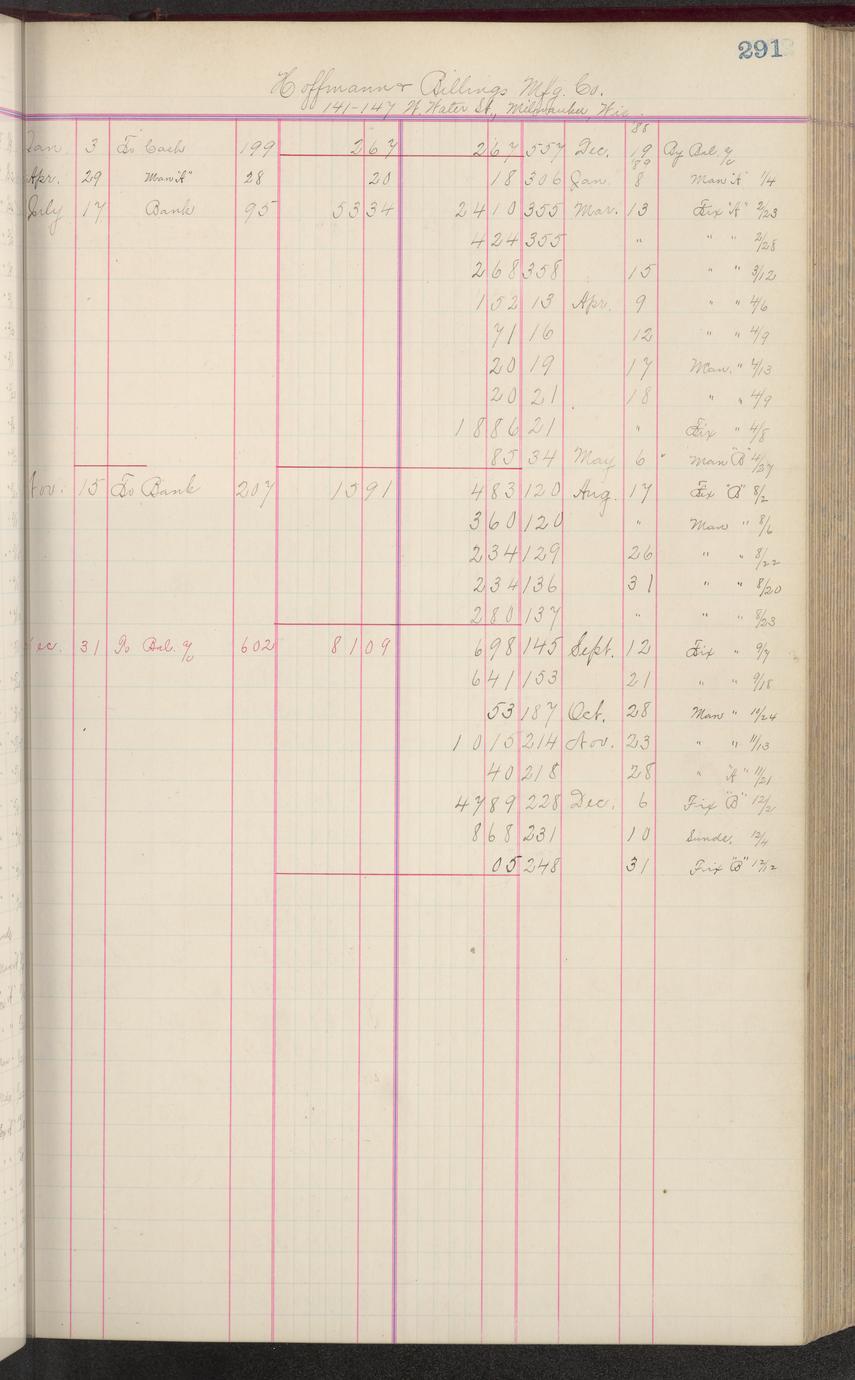 291
Hoffmann & Billings Mfg. Co.
141-147 W. Water St., Milwaukee, Wis.
'88
Jan. 3 To Cash 199 2 67 2 67 557 Dec. 19 By Bal. %
'89
Apr. 29 Man "A" 28 20 18 306 Jan. 8 Man "A" 1/4
July 17 Bank 95 53 34 24 10 355 Mar. 13 Fix "A" 2/23
4 24 355 " " " 2/28
2 68 358 15 " " 3/12
1 52 13 Apr. 9 " " 4/6
71 16 12 " " 4/9
20 19 17 Man. " 4/13
20 21 18 " " 4/9
18 86 21 " Fix " 4/8
85 34 May 6 " Man "B" 4/27
Nov. 15 To Bank 207 15 91 4 83 120 Aug. 17 Fix "B" 8/2
3 60 120 " Man " 8/6
2 34 129 26 " " 8/22
2 34 136 31 " " 8/20
2 80 137 " " " 8/23
Dec. 31 To Bal. % 602 81 09 6 98 145 Sept. 12 Fix " 9/7
6 41 153 21 " " 9/18
53 187 Oct. 28 Man " 10/24
10 15 214 Nov. 23 " " 11/13
40 218 28 " "A" 11/21
47 89 228 Dec. 6 Fix "B" 12/2
8 68 231 10 Sunds. 12/4
05 248 31 Fix "B" 12/12